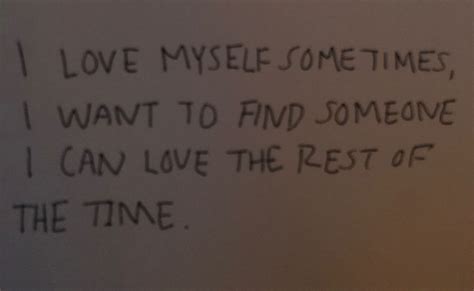 I LOVE MYSELF SOMETIMES,
I WANT TO FIND SOMEONE
I CAN LOVE THE REST OF
THE TIME.